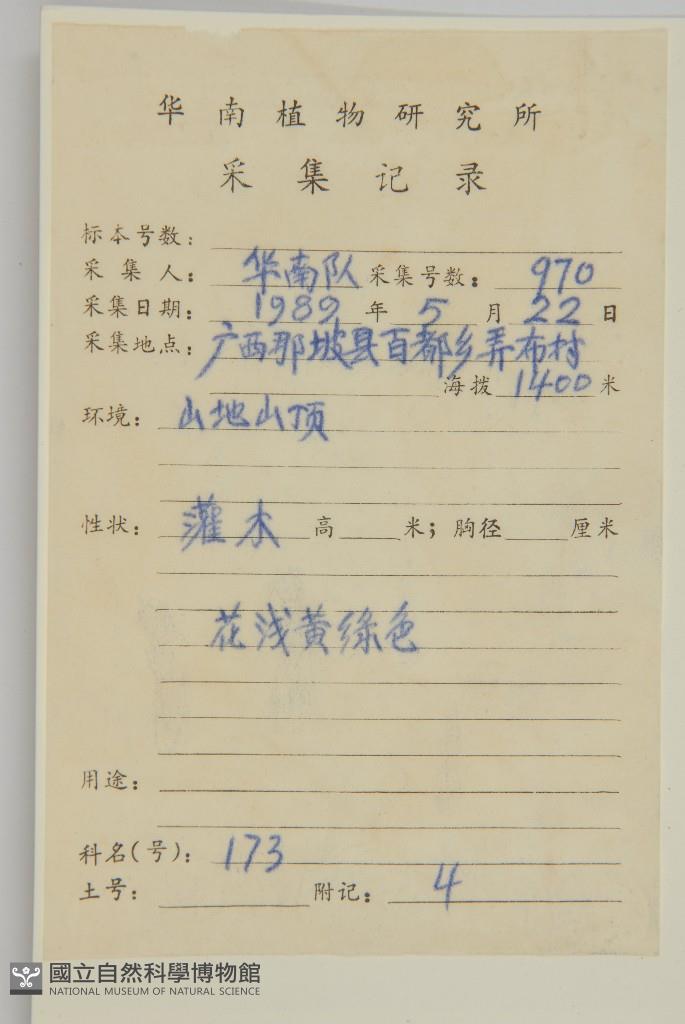 华南植物研究所
采集记录
标本号数：
采集人： 华南队 采集号数： 970
采集日期： 1989 年 5 月 22 日
采集地点： 广西那坡县百都乡弄布村
海拨 1400 米
环境： 山地山顶
性状： 灌木 高 米；胸径 厘米
花浅黄绿色
用途：
科名(号)： 173
土号： 附记： 4
國立自然科學博物館
NATIONAL MUSEUM OF NATURAL SCIENCE